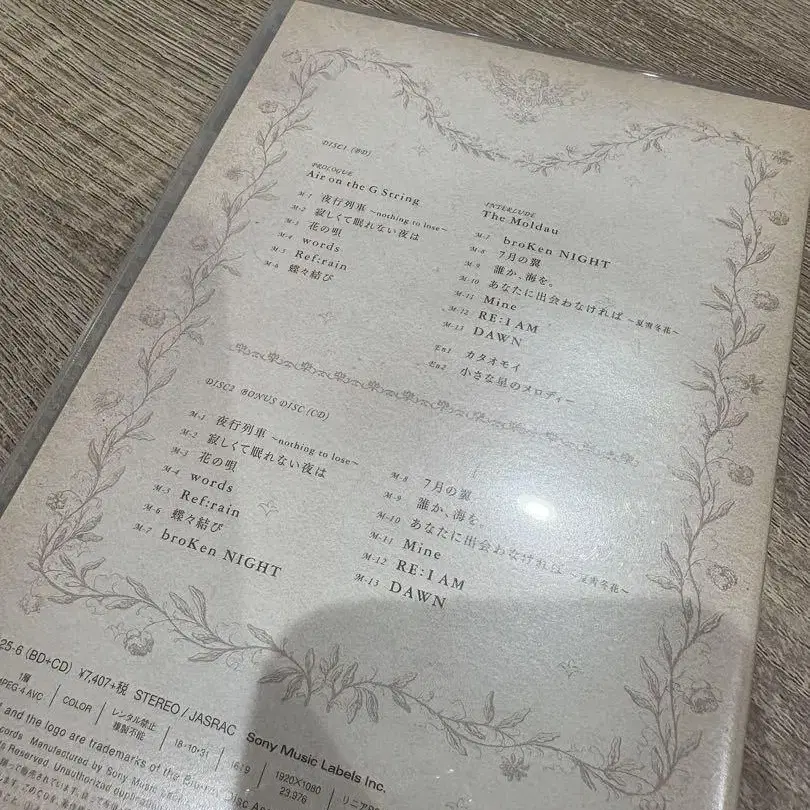 DISC1 (BD)
PROLOGUE
Air on the G String
M-1 夜行列車 ~nothing to lose~
M-2 寂しくて眠れない夜は
M-3 花の唄
M-4 words
M-5 Ref:rain
M-6 蝶々結び
INTERLUDE
The Moldau
M-7 broKen NIGHT
M-8 7月の翼
M-9 誰か、海を。
M-10 あなたに出会わなければ ~夏雪冬花~
M-11 Mine
M-12 RE:I AM
M-13 DAWN
En1 カタオモイ
En2 小さな星のメロディー
DISC2 BONUS DISC (CD)
M-1 夜行列車 ~nothing to lose~
M-2 寂しくて眠れない夜は
M-3 花の唄
M-4 words
M-5 Ref:rain
M-6 蝶々結び
M-7 broKen NIGHT
M-8 7月の翼
M-9 誰か、海を。
M-10 あなたに出会わなければ ~夏雪冬花~
M-11 Mine
M-12 RE:I AM
M-13 DAWN
25-6 (BD+CD) ¥7,407+税 STEREO / JASRAC Sony Music Labels Inc.
1層
MPEG 4 AVC
COLOR
レンタル禁止
複製不能
18・10・31
16:9
1920×1080
23.976
リニアPC
and the logo are trademarks of the
Manufactured by Sony Music
Reserved. Unauthorized duplication